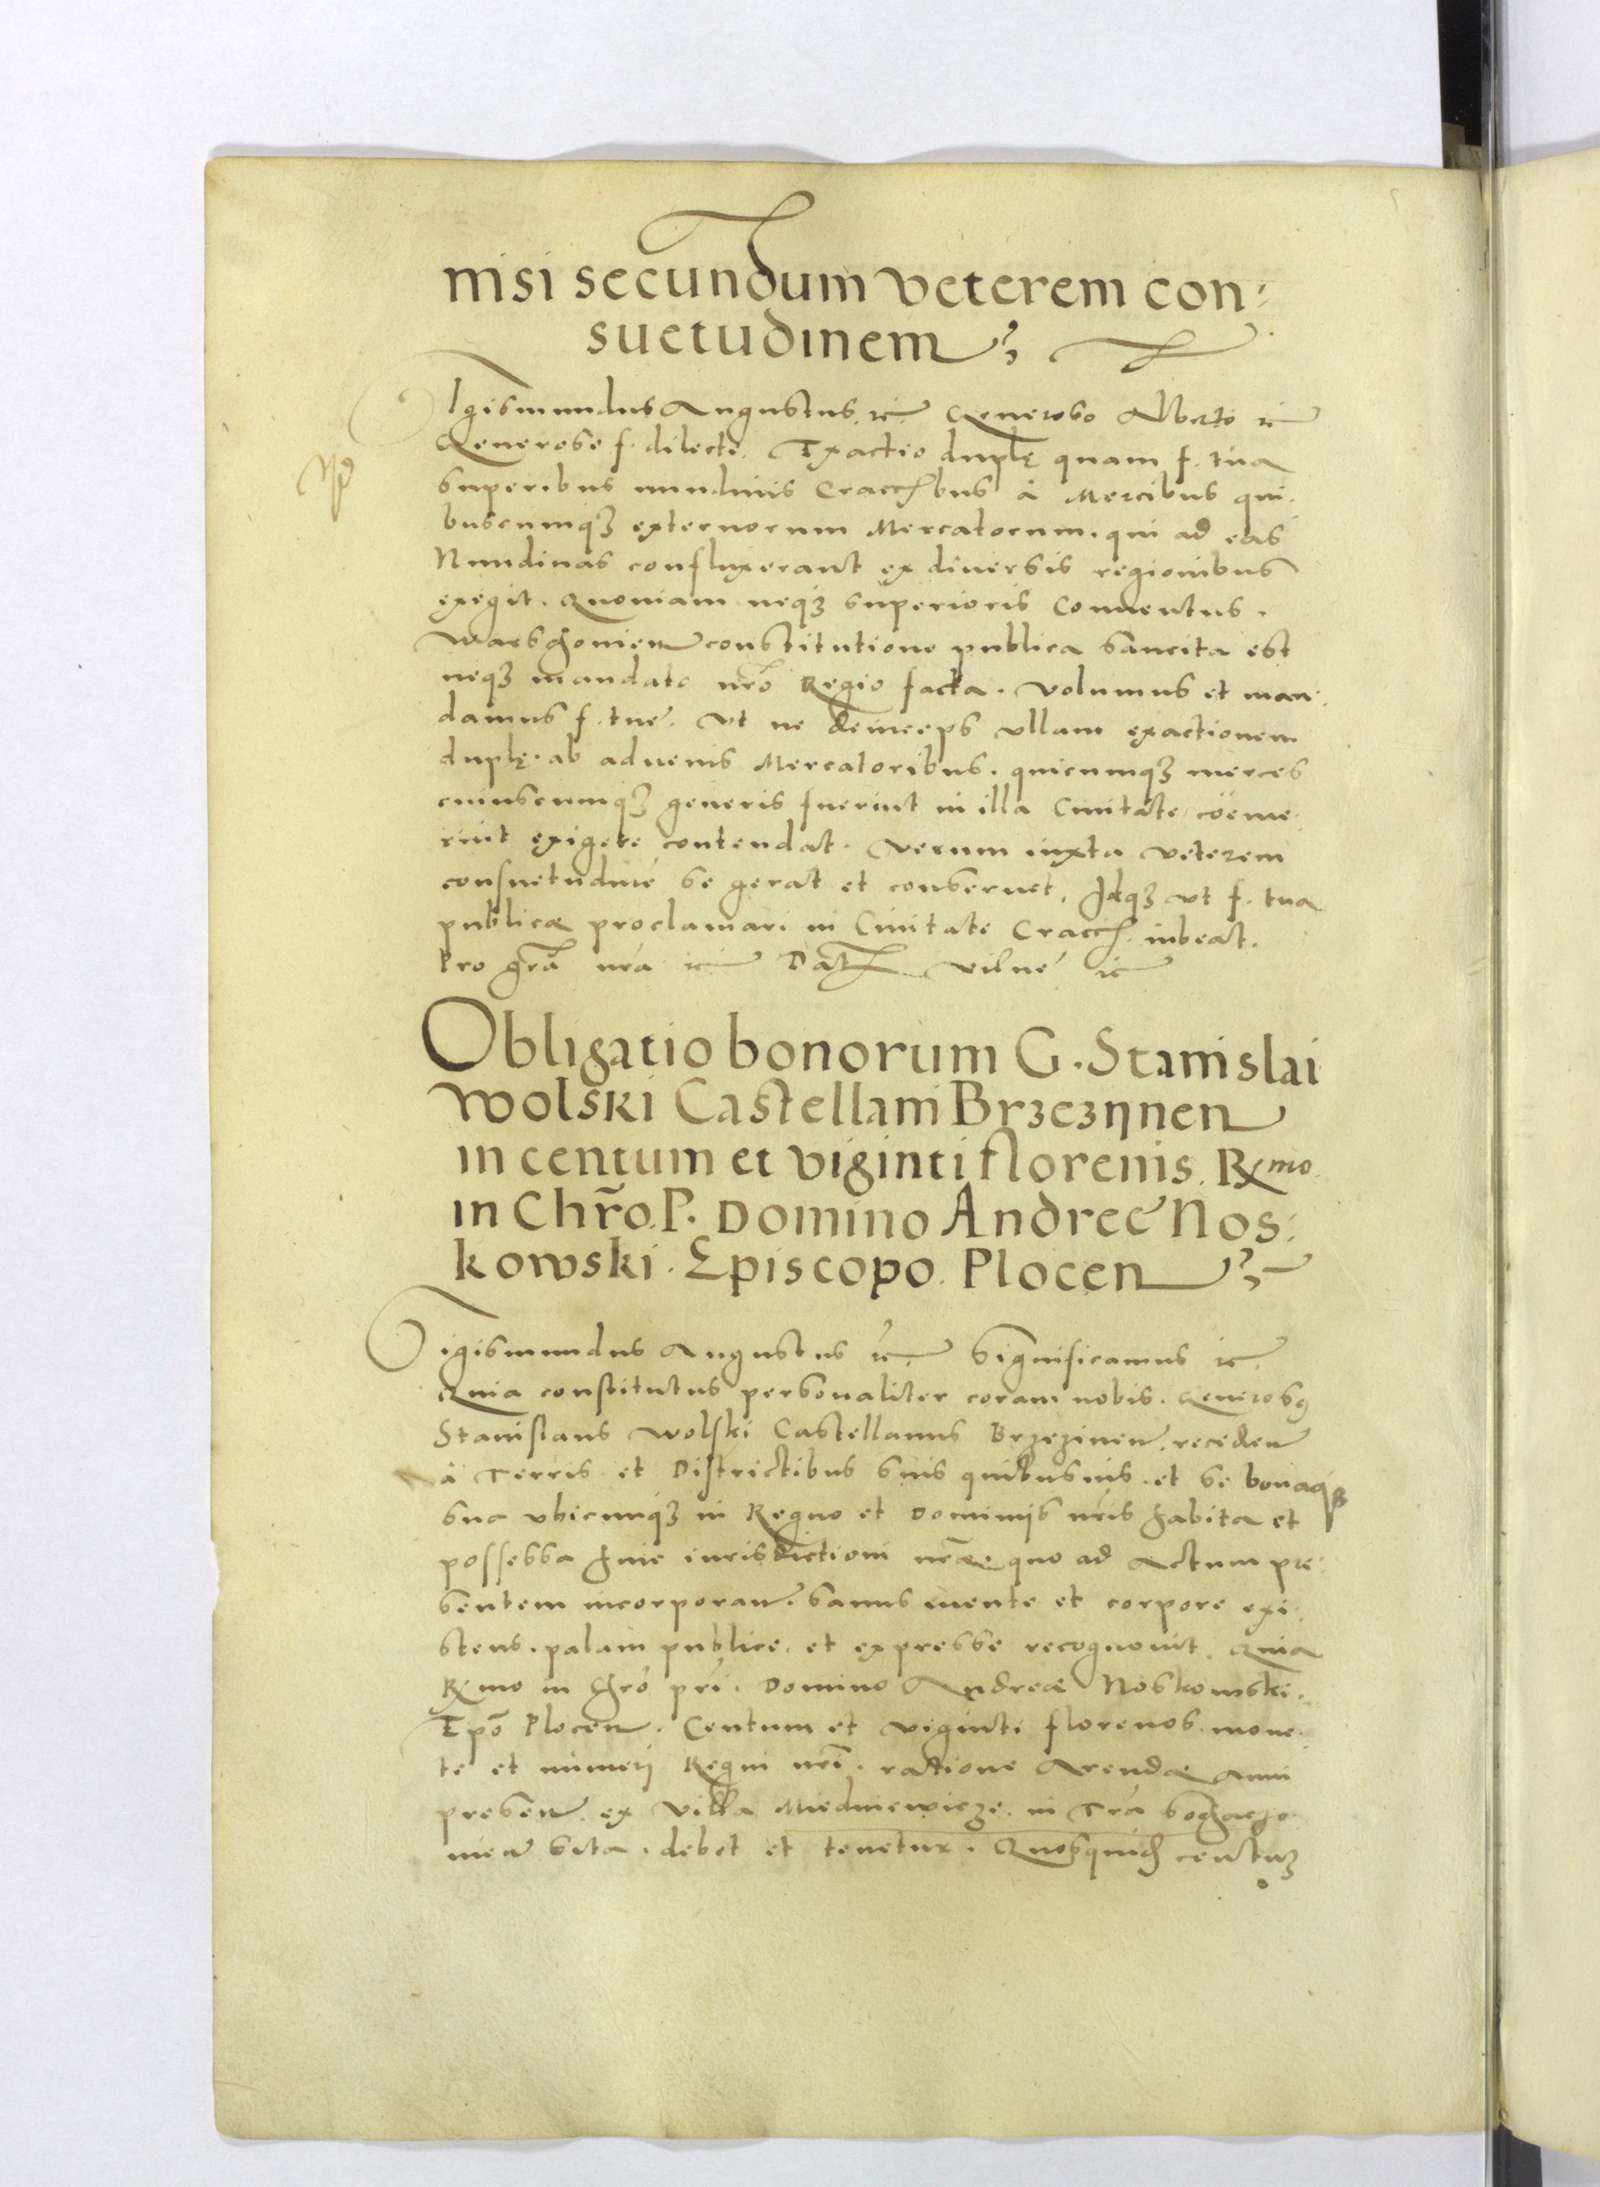 nisi secundum veterem con:
suetudinem
Sigismundus Augustus. etc Generoso Alberto etc
Generose f. dilecte. Exactio duplę quam f. tua
superibus nundinis Craccħbus à Mercibus qui:
buscumqꝫ externorum Mercatorum. qui ad eas
Nundinas confluxerant ex diuersis regionibus
exegit. Quoniam neqꝫ superioris Conuentus.
Warschouien constitutione publica sancita est
neqꝫ mandato nrō Regio facta. volumus et man:
damus f. tue. Vt ne deinceps vllam exactionem
duplę. ab aduenis Mercatoribus. quicumqꝫ merces
cuiuscumqꝫ generis fuerint in illa Ciuitate cöeme:
rint exigere contendat. Verum iuxta veterem
consuetudinē se gerat et conseruet. Idqꝫ vt f. tua
publicæ proclamari in Ciuitate Craccħ. iubeat.
Pro grā nrā etc Dat Vilnę etc
Obligatio bonorum G. Stanislai
Wolski Castellani Brzezynen
in centum et viginti florenis. Rx mo.
in Chr̃o. P. Domino Andreę Nos:
kowski. Episcopo. Plocen
Sigismundus Augustus etc. Significamus etc.
Quia constitutus personaliter coram nobis. Generosꝰ
Stanislaus Wolski Castellanus Brzezinen. receden
à Terris et Districtibus suis quibusuis. et se bonaqꝫ
sua vbicunqꝫ in Regno et Dominijs nr̃is habita et
possessa huic iurisdictioni nr̃æ quo ad Actum pre:
sentem incorporan. sanus mente et corpore exi:
stens. palam publice. et expresse recognouit. Quia
Rx mo in Chrō pri. Domino Andreæ Noskowski.
Epō Plocen. Centum et viginti florenos. mone:
te et numeri Regni nri. ratione Arendæ anni
presen. ex Villa Miedniewicze. in Trā Sochaczo:
uien sita. debet et tenetur. Quosquidͫ centuꝫ